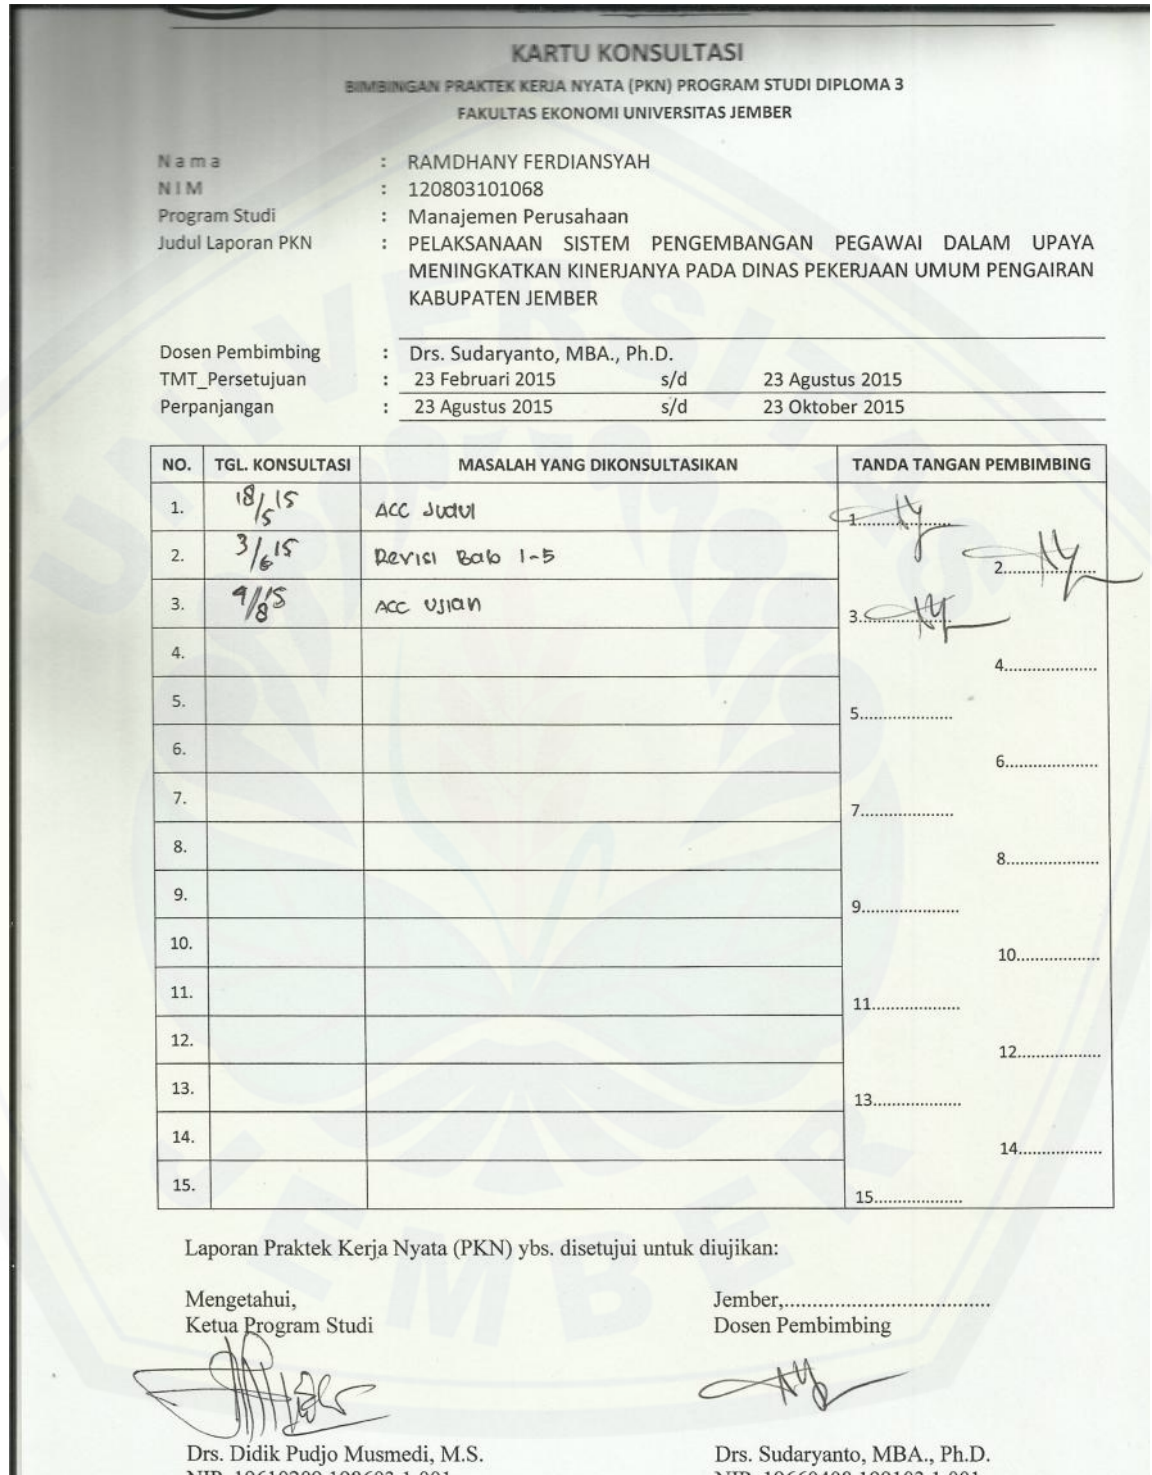 KARTU KONSULTASI
BIMBINGAN PRAKTEK KERJA NYATA (PKN) PROGRAM STUDI DIPLOMA 3
FAKULTAS EKONOMI UNIVERSITAS JEMBER
Nama : RAMDHANY FERDIANSYAH
NIM : 120803101068
Program Studi : Manajemen Perusahaan
Judul Laporan PKN : PELAKSANAAN SISTEM PENGEMBANGAN PEGAWAI DALAM UPAYA
MENINGKATKAN KINERJANYA PADA DINAS PEKERJAAN UMUM PENGAIRAN
KABUPATEN JEMBER
Dosen Pembimbing : Drs. Sudaryanto, MBA., Ph.D.
TMT_Persetujuan : 23 Februari 2015 s/d 23 Agustus 2015
Perpanjangan : 23 Agustus 2015 s/d 23 Oktober 2015
NO. TGL. KONSULTASI MASALAH YANG DIKONSULTASIKAN TANDA TANGAN PEMBIMBING
1. 18/5 15 ACC Judul 1....................
2. 3/6 15 Revisi Bab 1-5 2....................
3. 9/8 15 ACC Ujian 3....................
4. 4....................
5. 5....................
6. 6....................
7. 7....................
8. 8....................
9. 9....................
10. 10..................
11. 11..................
12. 12..................
13. 13..................
14. 14..................
15. 15..................
Laporan Praktek Kerja Nyata (PKN) ybs. disetujui untuk diujikan:
Mengetahui, Jember,....................................
Ketua Program Studi Dosen Pembimbing
Drs. Didik Pudjo Musmedi, M.S. Drs. Sudaryanto, MBA., Ph.D.
UNIVERSITAS
JEMBER